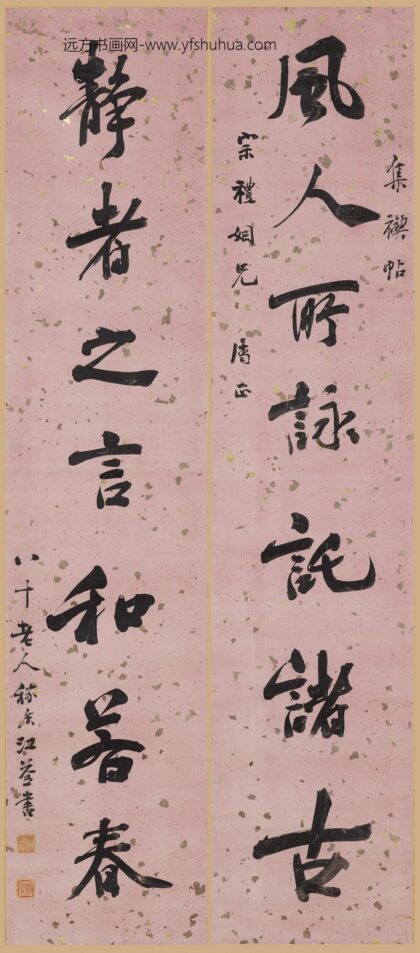 远方书画网-www.yfshuhua.com
集禊帖
風人所詠託諸古
宗禮姻兄 屬正
靜者之言和若春
八十老人 江 書